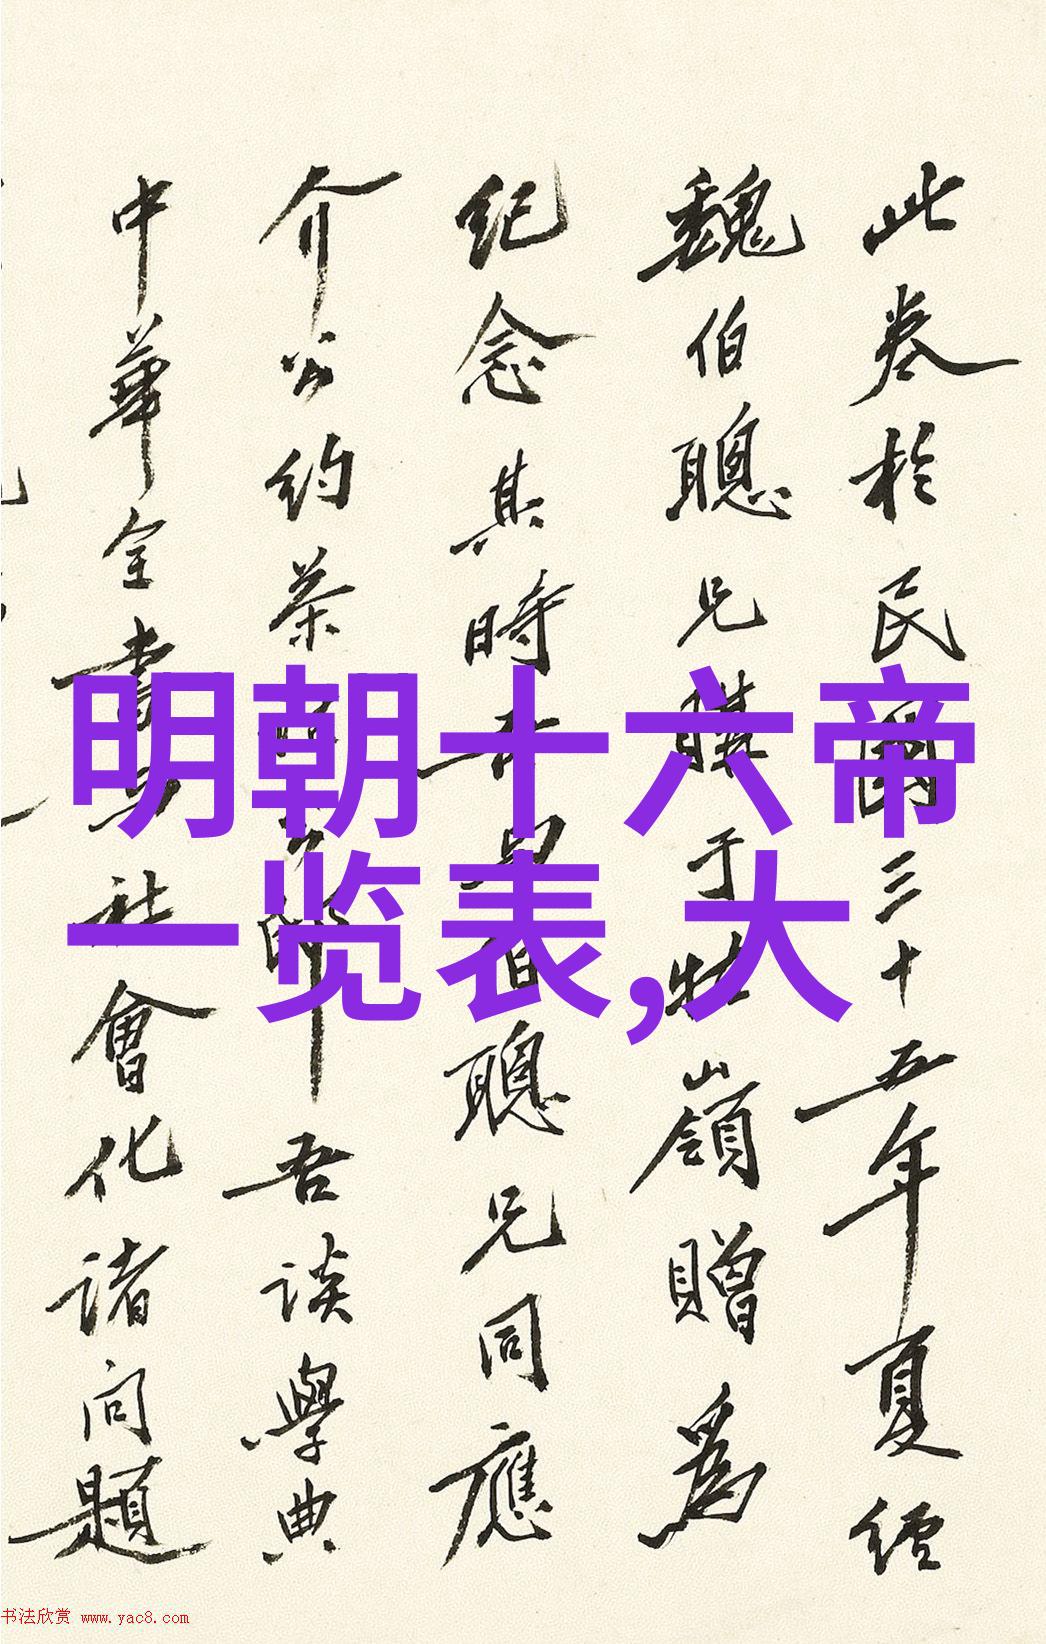 此卷於民國三十五年夏經
魏伯聰兄購于牯嶺贈為
紀念其時吾與伯聰兄同應
介公約茶
吾談學典
中華全書
社會化諸问題
明朝十六帝
一览表,大
书法欣赏 www.yac8.com